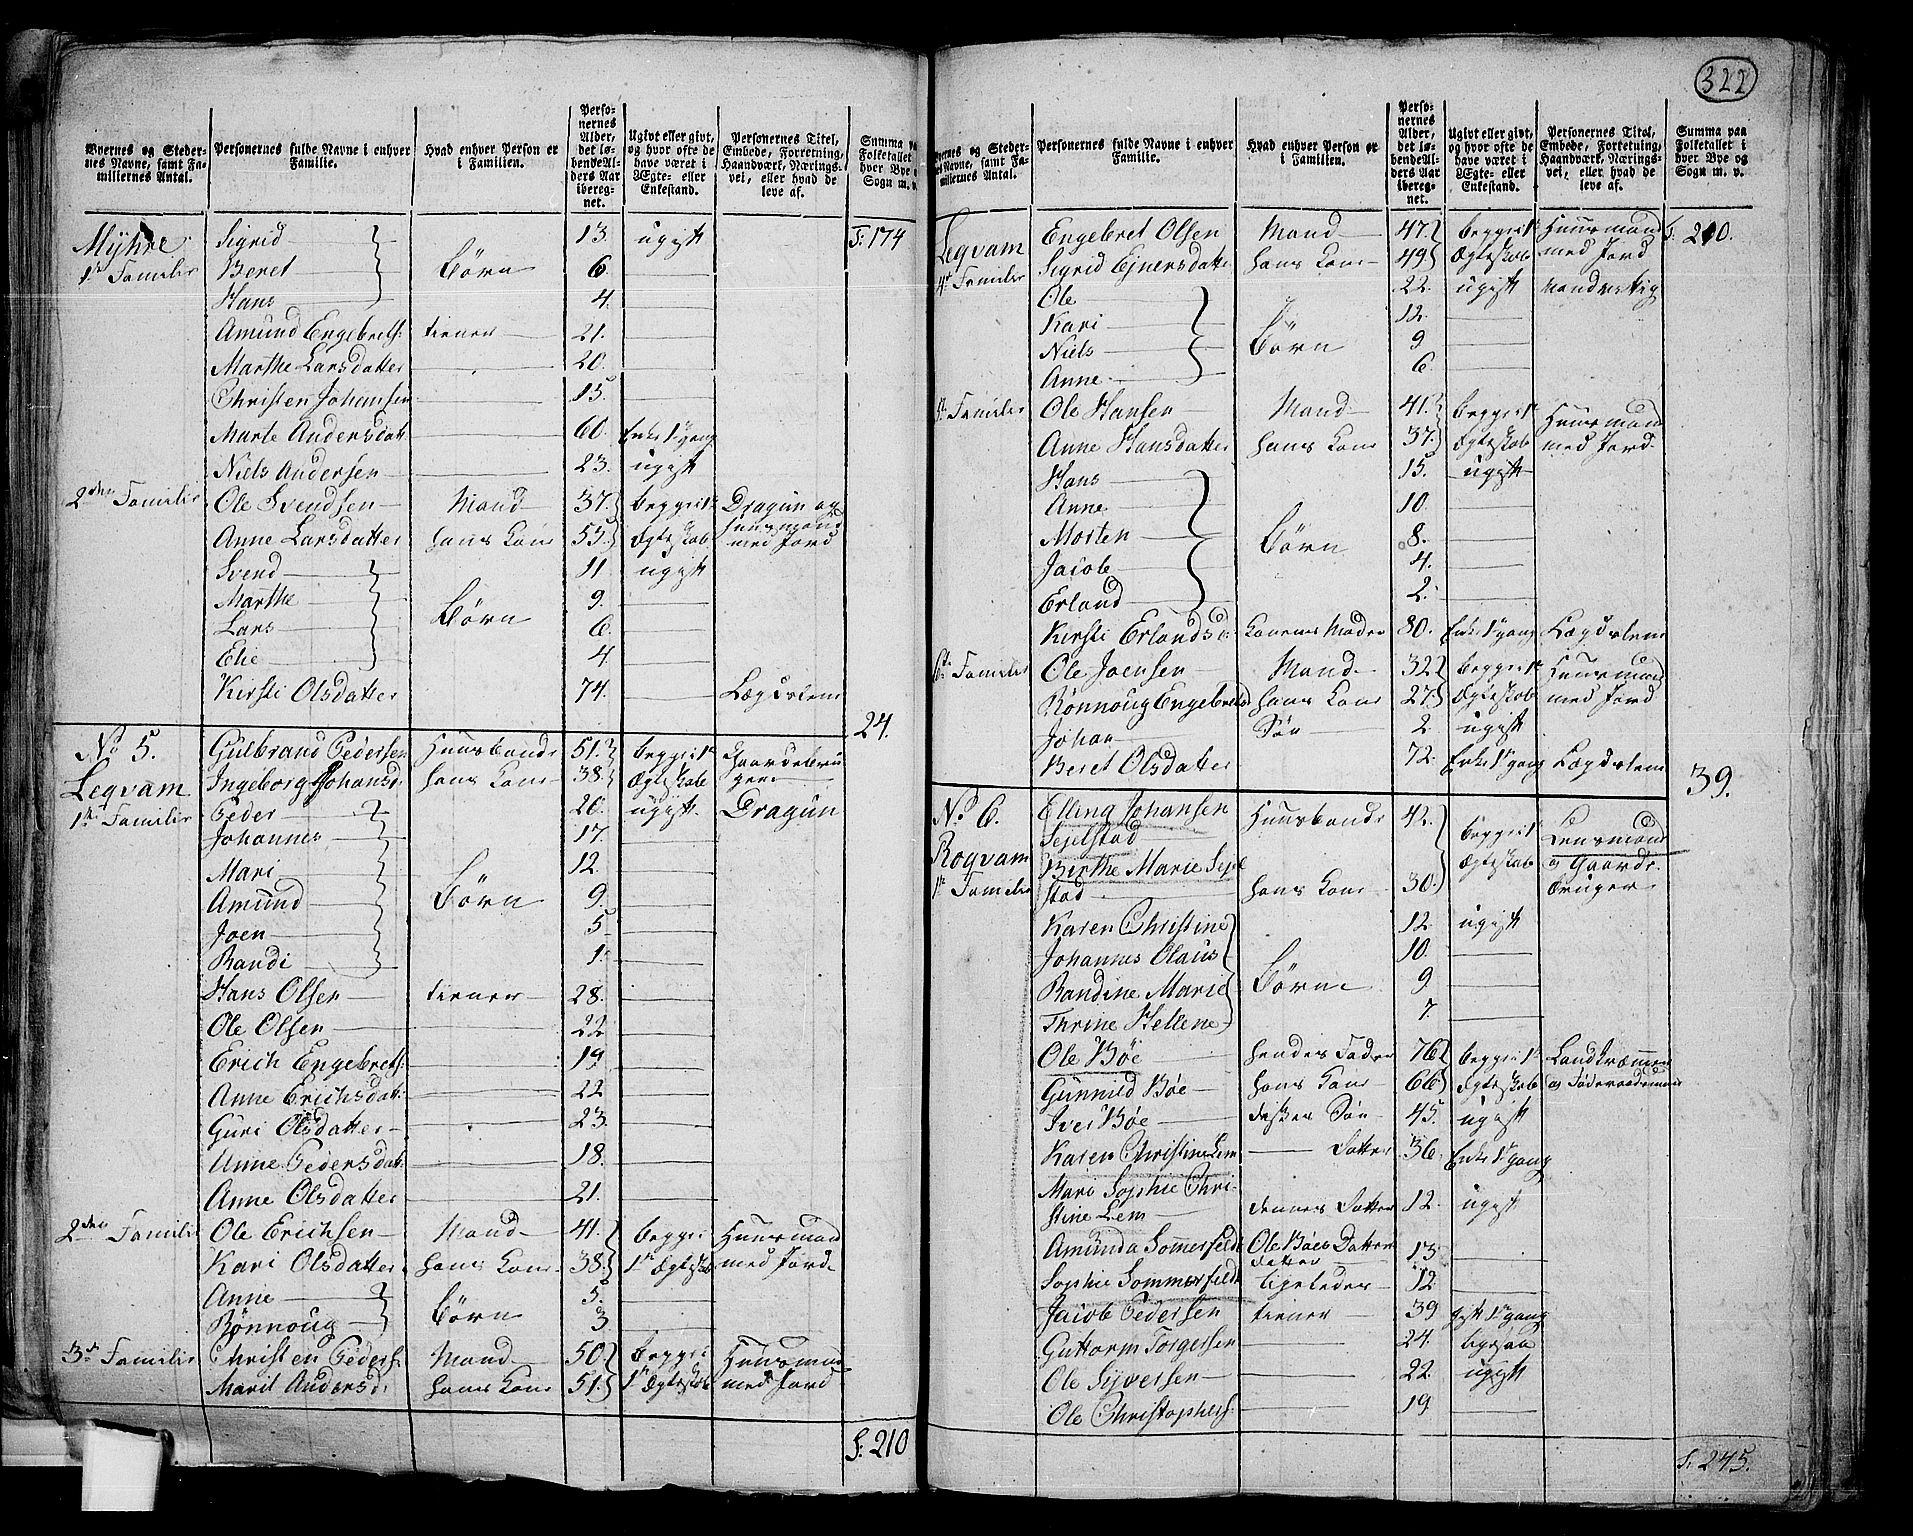 322
Byernes og Stedernes Navne, samt Familiernes Antal.
Personernes fulde Navne i enhver Familie.
Hvad enhver Person er i Familien.
Personernes Alder, det løbende Alders Aar iberegnet.
Ugivt eller givt, og hvor ofte de have været i Ægte- eller Enkestand.
Personernes Titel, Embede, Forretning, Haandværk, Næringsvei, eller hvad de leve af.
Summa paa Folketallet i hver Bye og Sogn m. v.
Myhre Sigrid 13. ugift T: 174
1te Familie Beret Børn 6.
Hans 4.
Amund Engebrets: tiener 21.
Marthe Larsdatter 20.
Christen Johansen 15.
Marte Andersdatt: 60. Enke 1 gang
Niels Andersen 23. ugift
2den Familie Ole Svendsen Mand 37. begge i 1te Dragun og
Anne Larsdatter hans Kone 53. Ægteskab Huusmand med Jord
Svend 11 ugift
Marthe 9.
Lars Børn 6.
Elie 4.
Kirsti Olsdatter 74. Lægdslem
24.
No 5. Gulbrand Pedersen Huusbonde 51. begge i 1te Gaardebru
Legvam Ingeborg Johansd: hans Kone 38. Ægteskab gere
1te Familie Peder 20. ugift. Dragun
Johannes 17.
Mari 12.
Amund Børn 9.
Joen 5
Randi 1.
Hans Olsen tiener 28.
Ole Olsen 22
Erich Engebrets: 19
Anne Erichsdatt: 22
Guri Olsdatter 23.
Anne Pedersdatt: 18.
Anne Olsdatter 21.
2den Familie Ole Erichsen Mand 41. begge i Huusmand
Kari Olsdatter hans Kone 38. 1te Ægteskab med Jord
Anne 5.
Rønnoug Børn 3
3de Familie Christen Peders: Mand 50. begge i Huusman
Marit Andersd: hans Kone 51. 1te Ægteskab med Jord
S: 210
Byernes og Stedernes Navne, samt Familiernes Antal.
Personernes fulde Navne i enhver Familie.
Hvad enhver Person er i Familien.
Personernes Alder, det løbende Alders Aar iberegnet.
Ugivt eller givt, og hvor ofte de have været i Ægte- eller Enkestand.
Personernes Titel, Embede, Forretning, Haandværk, Næringsvei, eller hvad de leve af.
Summa paa Folketallet i hver Bye og Sogn m. v.
Legvam Engebret Olsen Mand 47. begge i 1te Huusmand T: 210.
4de Familie Sigrid Ejnersdatter hans Kone 49 Ægteskab med Jord
Ole 22. ugift
Kari 12.
Niels Børn 9
Anne 6.
5te Familie Ole Hansen Mand 41. begge i 1te Huusmand
Anne Hansdatter hans Kone 37. Ægteskab med Jord
Hans 15. ugift
Anne 10.
Morten Børn 8.
Jacob 4.
Erland 2.
Kirsti Erlandsd: Konens Moder 80. Enke 1 gang Lægdslem
6te Familie Ole Joensen Mand 32 begge i 1te Huusmand
Rønnoug Engebretsd hans Kone 27 Ægteskab med Jord
Johan Søn 2. ugift
Beret Olsdatter 72. Enke 1 gang Lægdslem
39.
No 6. Elling Johansen Huusbonde 42. begge i 1te Lensmand
Sejelstad Ægteskab og Gaard
Rogvam Birthe Marie Sejel bruger
1te Familie stad hans Kone 30.
Karen Christine 12 ugift
Johannes Olaus 10.
Randine Marie Børn 9
Thrine Hellene 7.
Ole Bøe hendes Fader 76 begge i 1te Landkræmmer
Gunnild Bøe hans Kone 66 Ægteskab og Føderaadsmand
Iver Bøe disses Søn 45. ugift
Karen Christine Lem Datter 36. Enke 1 gang
Mari Sophie Chri-
stine Lem dennes Datter 12. ugift
Amunda Sommerfeldt Ole Bøes Datter 13
datter
Sophie Sommerfeldt ligeledes 12
Jacob Pedersen tiener 39 gift 1 gang
Guttorm Torgersen 24. ligesaa
Ole Syversen 22. ugift
Ole Christophers: 19
S: 245.